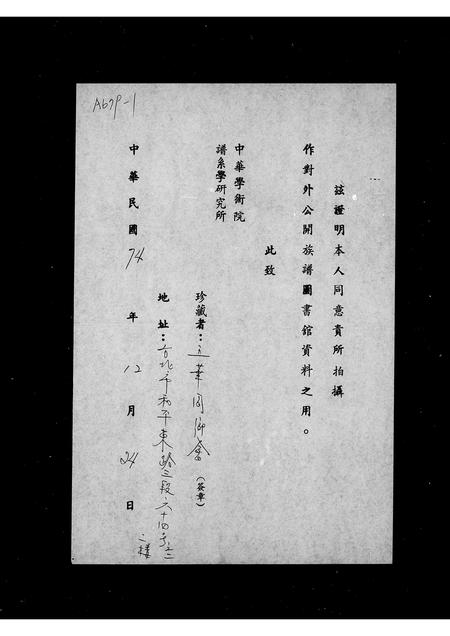 A679-1
茲證明本人同意貴所拍攝
作對外公開族譜圖書館資料之用。
此致
中華學術院
譜系學研究所
珍藏者：五華同鄉會（簽章）
地址：台北市和平東路三段六十四号之二
二樓
中華民國74年12月24日